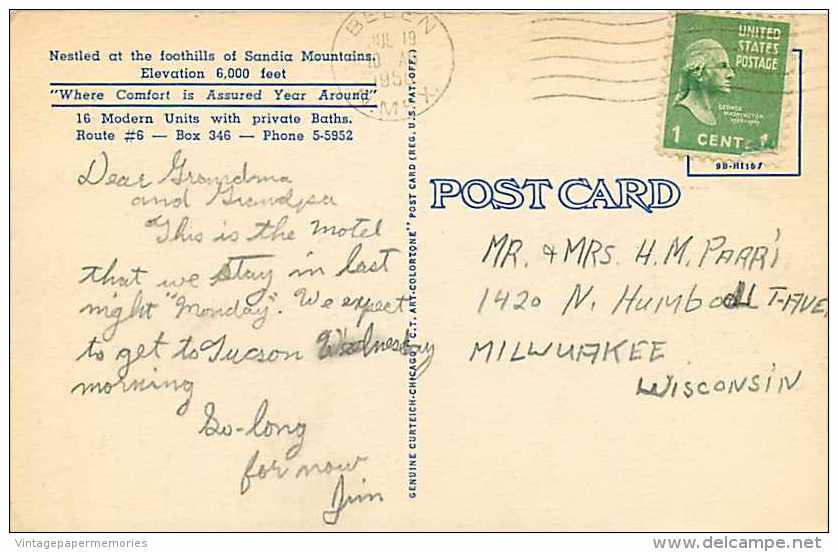 Nestled at the foothills of Sandia Mountains.
Elevation 6,000 feet
"Where Comfort is Assured Year Around"
16 Modern Units with private Baths.
Route #6 — Box 346 — Phone 5-5952
Dear Grandma
and Grandpa
This is the Motel
that we stay in last
night "Monday". We expect
to get to Tucson Wednesday
morning
So-long
for now
Jim
GENUINE CURTEICH-CHICAGO "C.T. ART-COLORTONE" POST CARD (REG. U.S. PAT. OFF.)
BELEN
JUL 19
10 A
195
N. MEX.
UNITED
STATES
POSTAGE
GEORGE
WASHINGTON
1 CENT 1
9B-H1167
POST CARD
MR. & MRS. H. M. PAARI
1420 N. HUMBOLDT-AVE,
MILWUAKEE
WISCONSIN
Vintagepapermemories
delcampe.net